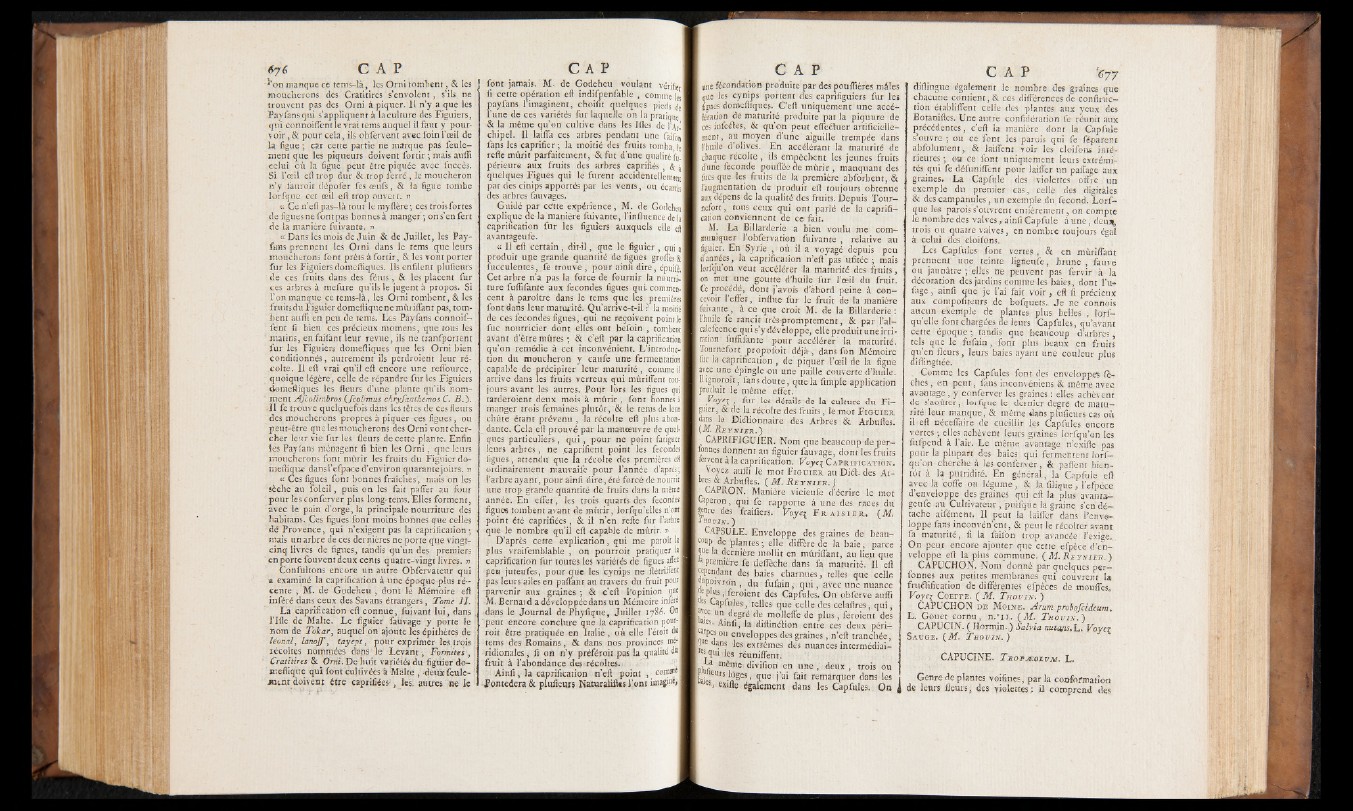 676 C A P
l'on manque ce tems-là, les Orni tombent, & les
moucherons des Cratitires s'envolent, s'ils ne
trouvent pas des Orni à piquer. Il n'y a que les
Paysans qui s'appliquent à la culture des Figuiers,
qui connoissent le vrai tems auquel il faut y pour-
voir, & pour cela, ils observent avec soin l'œil de
la figue; car cette partie ne marque pas seule-
ment que les piqueurs doivent sortir; mais aussi
celui où la figue peut être piquée avec succès.
Si l'œil est trop dur & trop serré, le moucheron
n'y sauroit déposer ses œufs, & la figue tombe
lorsque cet œil est trop ouvert. »
« Ce n'est pas-là tout le mystère; ces trois sortes
de figues ne sont pas bonnes à manger; on s'en sert
de la manière suivante. »
« Dans les mois de Juin & de Juillet, les Pay-
sans prennent les Orni dans le tems que leurs
moucherons sont prêts à sortir, & les vont porter
sur les Figuiers domestiques. Ils enfilent plusieurs
de ces fruits dans des fétus, & les placent sur
ces arbres à mesure qu'ils le jugent à propos. Si
l'on manque ce tems-là, les Orni tombent, & les
fruits du Figuier domestique ne mûrissant pas, tom-
bent aussi en peu de tems. Les Paysans connois-
sent si bien ces précieux momens, que tous les
matins, en faisant leur revue, ils ne transportent
sur les Figuiers domestiques que les Orni bien
conditionnés, autrement ils perdroient leur ré-
colte. Il est vrai qu'il est encore une ressource,
quoique légère, celle de répandre sur les Figuiers
domestiques les fleurs d'une plante qu'ils nom-
ment Ascolimbros (scolimus chrysanthemos C. B.).
Il se trouve quelquefois dans les têtes de ces fleurs
des moucherons propres à piquer ces figues, ou
peut-être que les moucherons des Orni vont cher-
cher leur vie sur les fleurs de cette plante. Enfin
les Paysans ménagent si bien les Orni, que leurs
moucherons font mûrir les fruits du Figuier do-
mestique dans l'espace d'environ quarante jours. »
« Ces figues sont bonnes fraîches, mais on les
sèche au soleil, puis on les fait passer au four
pour les conserver plus long-tems. Elles forment,
avec le pain d'orge, la principale nourriture des
habitans. Ces figues sont moins bonnes que celles
de Provence, qui n'exigent pas la caprification;
mais un arbre de ces dernières ne porte que vingt-
cinq livres de figues, tandis qu'un des premiers
en porte souvent deux cents quatre-vingt livres. »
Consultons encore un autre Observateur qui
a examiné la caprification à une époque plus ré-
cente, M. de Godeheu, dont le Mémoire est
inséré dans ceux des Savans étrangers, Tome II.
La caprification est connue, suivant lui, dans
l'Isle de Malte. Le figuier sauvage y porte le
nom de Tokar, auquel on ajoute les épithètes de
leoual, lanoss, tayept, pour exprimer les trois
récoltes nommées dans le Levant, Fornites,
Cratitires & Orni. De huit variétés du figuier do-
mestique qui sont cultivées à Malte, deux seule-
ment doivent être caprifiées, les autres ne le
C A P
sont jamais. M. de Godeheu voulant vérifier
si cette opération est indispensable, comme les
paysans l'imaginent, choisit quelques pieds de
l'une de ces variétés sur laquelle on la pratique,
& la même qu'on cultive dans les Isles de l'Ar-
chipel. Il laissa ces arbres pendant une saison
sans les caprifier; la moitié des fruits tomba, le
reste mûrit parfaitement, & fut d'une qualité su-
périeure aux fruits des arbres caprifiés, & à
quelques Figues qui le furent accidentellement
par des cinips apportés par les vents, ou écartés
des arbres sauvages.
Guidé par cette expérience, M. de Godeheu
explique de la manière suivante, l'influence de la
caprification sur les figuiers auxquels elle est
avantageuse.
« Il est certain, dit-il, que le figuier, qui a
produit une grande quantité de figues grosses &
succulentes, se trouve, pour ainsi dire, épuisé.
Cet arbre n'a pas la force de fournir la nourri-
ture suffisante aux secondes figues qui commen-
cent à paroître dans le tems que les premières
sont dans leur maturité. Qu'arrive-t-il? la moitié
de ces secondes figues, qui ne reçoivent point le
suc nourricier dont elles ont besoin, tombent
avant d'être mûres; & c'est par la caprification
qu'on remédie à cet inconvénient. L'introduc-
tion du moucheron y cause une fermentation
capable de précipiter leur maturité, comme il
arrive dans les fruits verreux qui mûrissent tou-
jours avant les autres. Pour lors les figues qui
tarderoient deux mois à mûrir, sont bonnes à
manger trois semaines plutôt, & le tems de leur
chûte étant prévenu, la récolte est plus abon-
dante. Cela est prouvé par la manœuvre de quel-
ques particuliers, qui, pour ne point fatiguer
leurs arbres, ne caprifient point les secondes
figues, attendu que la récolte des premières est
ordinairement mauvaise pour l'année d'après,
l'arbre ayant, pour ainsi dire, été forcé de nourrir
une trop grande quantité de fruits dans la même
année. En effet, les trois quarts des secondes
figues tombent avant de mûrir, lorsqu'elles n'ont
point été caprifiées, & il n'en reste sur l'arbre
que le nombre qu'il est capable de mûrir. »
D'après cette explication, qui me paroît la
plus vraisemblable, on pourroit pratiquer la
caprification sur toutes les variétés de figues assez
peu juteuses, pour que les cynips ne flétrissent
pas leurs ailes en passant au travers du fruit pour
parvenir aux graines; & c'est l'opinion que
M. Bernard a développée dans un Mémoire inséré
dans le Journal de Physique, Juillet 1786. On
peut encore conclure que la caprification pour-
roit être pratiquée en Italie, où elle l'étoit du
tems des Romains, & dans nos provinces mé-
ridionales, si on n'y préféroit pas la qualité du
fruit à l'abondance des récoltes.
Ainsi, la caprification n'est point, comme
Pontedera & plusieurs Naturalistes l'ont imaginé,
C A P
une fécondation produite par des poussières mâles
que les cynips portent des caprifiguiers sur les
figues domestiques. C'est uniquement une accé-
lération de maturité produite par la piquure de
ces insectes, & qu'on peut effectuer artificielle-
ment, au moyen d'une aiguille trempée dans
l'huile d'olives. En accélérant la maturité de
chaque récolte, ils empêchent les jeunes fruits
d'une seconde poussée de mûrir, manquant des
sucs que les fruits de la première absorbent, &
l'augmentation de produit est toujours obtenue
aux dépens de la qualité des fruits. Depuis Tour-
nefort, tous ceux qui ont parlé de la caprifi-
cation conviennent de ce fait.
M. La Billarderie a bien voulu me com-
muniquer l'observation suivante, relative au
figuier. En Syrie, où il a voyagé depuis peu
d'années, la caprification n'est pas usitée; mais
lorsqu'on veut accélérer la maturité des fruits,
on met une goutte d'huile sur l'œil du fruit.
Ce procédé, dont j'avois d'abord peine à con-
cevoir l'effet, influe sur le fruit de la manière
suivante, à ce que croit M. de la Billarderie:
l'huile se rancit très-promptement, & par l'al-
calescence qui s'y développe, elle produit une irri-
tation suffisante pour accélérer la maturité.
Tournefort proposoit déjà, dans son Mémoire
sur la caprification, de piquer l'œil de la figue
avec une épingle ou une paille couverte d'huile.
Il ignoroit, sans doute, que la simple application
produit le même effet.
Voyez, sur les détails de la culture du Fi-
guier, & de la récolte des fruits, le mot FIGUIER
dans le Dictionnaire des Arbres & Arbustes.
(M. REYNIER.)
CAPRIFIGUIER. Nom que beaucoup de per-
sonnes donnent au figuier sauvage, dont les fruits
servent à la caprification. Voyez CAPRIFICATION.
Voyez aussi le mot FIGUIER au Dict. des Ar-
bres & Arbustes. (M. REYNIER.)
CAPRON. Manière vicieuse d'écrire le mot
Caperon, qui se rapporte à une des races du
genre des fraisiers. Voyez FRAISIER. (M.
THOUIN.)
CAPSULE. Enveloppe des graines de beau-
coup de plantes; elle diffère de la baie, parce
que la dernière mollit en mûrissant, au lieu que
la première se dessèche dans sa maturité. Il est
cependant des baies charnues, telles que celle
du poivron, du fusain, qui, avec une nuance
de plus, seroient des Capsules. On observe aussi
des Capsules, telles que celle des celastres, qui,
avec un degré de mollesse de plus, seroient des
baies. Ainsi, la distinction entre ces deux péri-
carpes ou enveloppes des graines, n'est tranchée,
que dans les extrêmes des nuances intermédiai-
res qui les réunissent.
La même division en une, deux, trois ou
plusieurs loges, que j'ai fait remarquer dans les
baies, existe également dans les Capsules. On
C A P 677
distingue également le nombre des graines que
chacune contient, & ces différences de construc-
tion établissent celle des plantes aux yeux des
Botanistes. Une autre considération se réunit aux
précédentes, c'est la manière dont la Capsule
s'ouvre; ou ce sont les parois qui se séparent
absolument, & laissent voir les cloisons inté-
rieures; ou ce sont uniquement leurs extrémi-
tés qui se désunissent pour laisser un passage aux
graines. La Capsule des violettes offre un
exemple du premier cas, celle des digitales
& des campanules, un exemple du second. Lors-
que les parois s'ouvrent entièrement, on compte
le nombre des valves, ainsi Capsule à une, deux,
trois ou quatre valves, en nombre toujours égal
à celui des cloisons.
Les Capsules sont vertes, & en mûrissant
prennent une teinte ligneuse, brune, fauve
ou jaunâtre; elles ne peuvent pas servir à la
décoration des jardins comme les baies, dont l'u-
sage, ainsi que je l'ai fait voir, est si précieux
aux compositeurs de bosquets. Je ne connois
aucun exemple de plantes plus belles, lors-
qu'elle sont chargées de leurs Capsules, qu'avant
cette époque; tandis que beaucoup d'arbres,
tels que le fusain, sont plus beaux en fruits
qu'en fleurs, leurs baies ayant une couleur plus
distinguée.
Comme les Capsules sont des enveloppes sè-
ches, on peut, sans inconvéniens & même avec
avantage, y conserver les graines: elles achèvent
de s'aoûter, lorsque le dernier degré de matu-
rité leur manque, & même dans plusieurs cas où
il est nécessaire de cueillir les Capsules encore
vertes; elles achèvent leurs graines lorsqu'on les
suspend à l'air. Le même avantage n'existe pas
pour la plupart des baies qui fermentent lors-
qu'on cherche à les conserver, & passent bien-
tôt à la putridité. En général, la Capsule est
avec la cosse ou légume, & la silique, l'espèce
d'enveloppe des graines qui est la plus avanta-
geuse au Cultivateur, puisque la graine s'en dé-
tache aisément. Il peut la laisser dans l'enve-
loppe sans inconvénient, & peut le récolter avant
sa maturité, si la saison trop avancée l'exige.
On peut encore ajouter que cette espèce d'en-
veloppe est la plus commune. (M. REYNIER.)
CAPUCHON. Nom donné par quelques per-
sonnes aux petites membranes qui couvrent la
fructification de différentes espèces de mousses.
Voyez COEFFE. (M. THOUIN.)
CAPUCHON DE MOINE. Arum proboscideum.
L. Gouet cornu, n.° 13. (M. THOUIN.)
CAPUCIN. (Hormin.) Salvia nutans. L. Voyez
SAUGE. (M. THOUIN.)
CAPUCINE. TROPÆOLUM. L.
Genre de plantes voisines, par la conformation
de leurs fleurs, des violettes: il comprend des